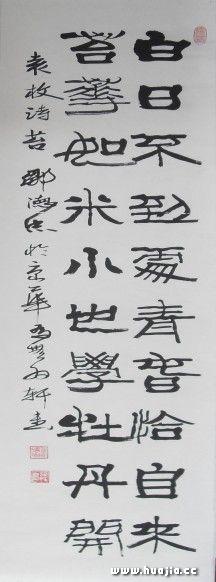 白日不到處青春恰自來
苔華如米小也學牡丹開
袁枚诗苔 於京華 轩
www.huajia.cc